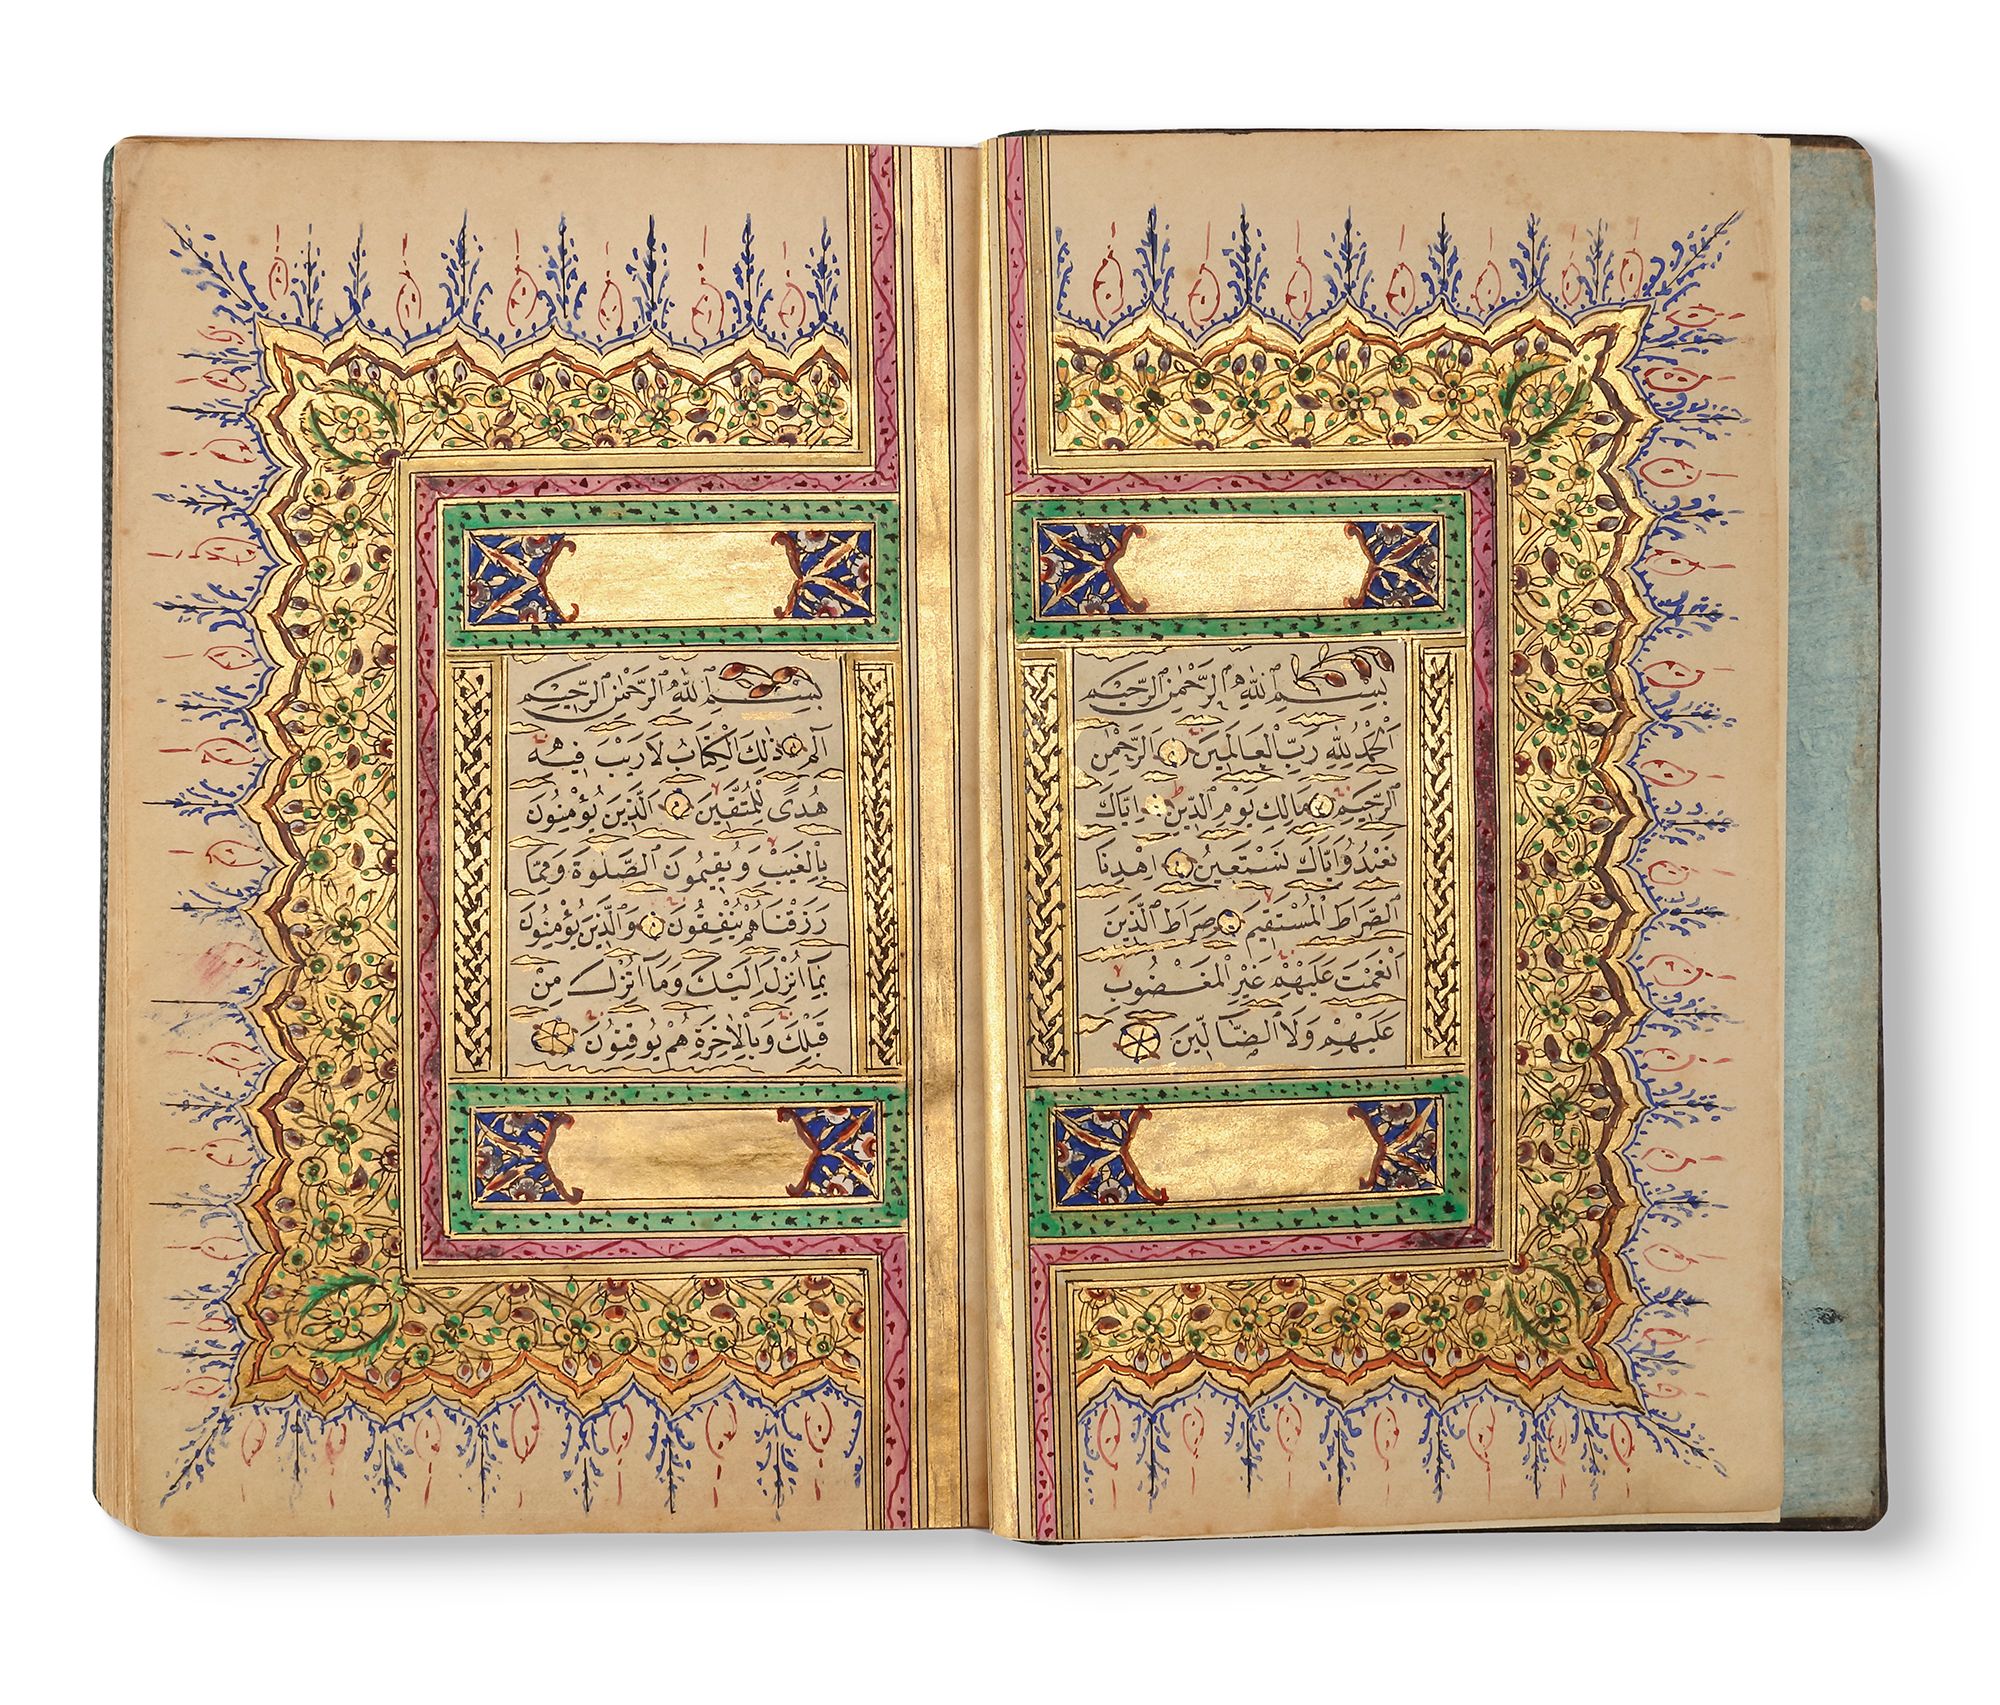 بِسْمِ اللّٰهِ الرَّحْمٰنِ الرَّحِيْمِ
اَلْحَمْدُ لِلّٰهِ رَبِّ الْعَالَمِينَ الرَّحْمٰنِ
الرَّحِيْمِ مَالِكِ يَوْمِ الدِّينِ اِيَّاكَ
نَعْبُدُ وَاِيَّاكَ نَسْتَعِينُ اِهْدِنَا
الصِّرَاطَ الْمُسْتَقِيمَ صِرَاطَ الَّذِينَ
اَنْعَمْتَ عَلَيْهِمْ غَيْرِ الْمَغْضُوبِ
عَلَيْهِمْ وَلَا الضَّالِّينَ
بِسْمِ اللّٰهِ الرَّحْمٰنِ الرَّحِيْمِ
الٓمٓ ذٰلِكَ الْكِتَابُ لَا رَيْبَ فِيهِ
هُدًى لِلْمُتَّقِينَ اَلَّذِينَ يُؤْمِنُونَ
بِالْغَيْبِ وَيُقِيمُونَ الصَّلٰوةَ وَمِمَّا
رَزَقْنَاهُمْ يُنْفِقُونَ وَالَّذِينَ يُؤْمِنُونَ
بِمَٓا اُنْزِلَ اِلَيْكَ وَمَٓا اُنْزِلَ مِنْ
قَبْلِكَ وَبِالْاٰخِرَةِ هُمْ يُوقِنُونَ